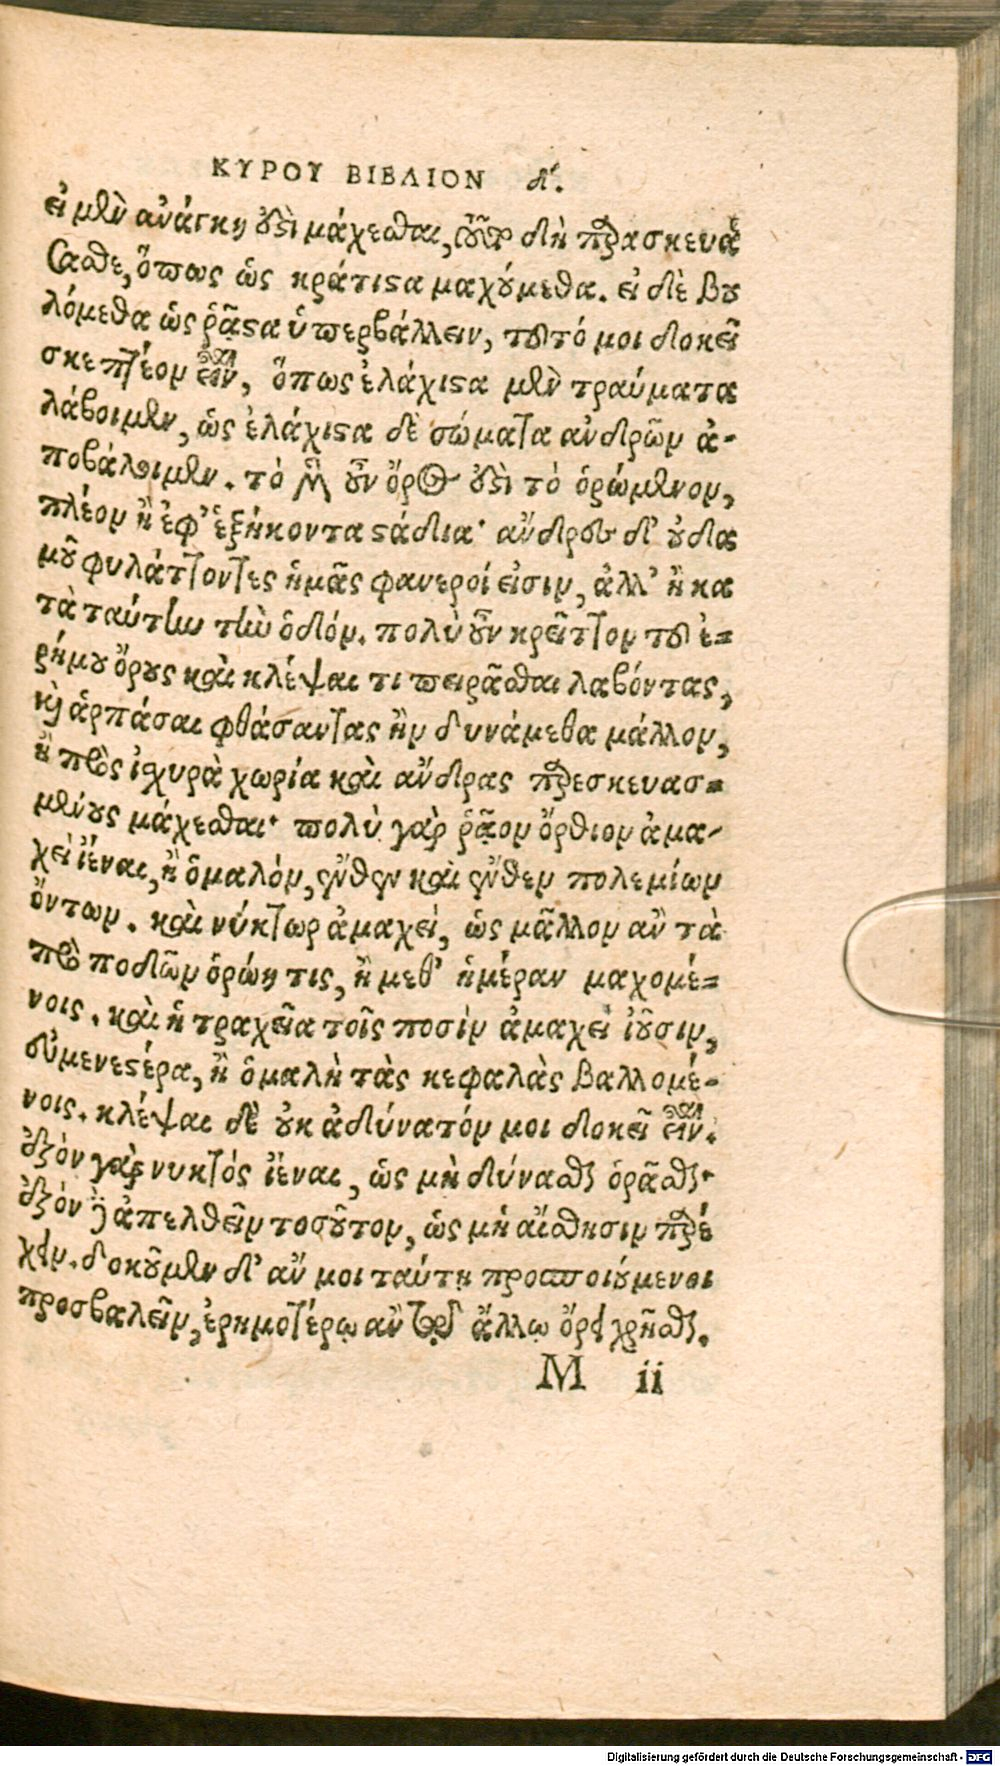 ΚΥΡΟΥ ΒΙΒΛΙΟΝ δ'.
εἰ μὲν ἀνάγκη ἐστὶ μάχεσθαι, τοῦτο δὴ παρασκευά
σασθε, ὅπως ὡς κράτιστα μαχούμεθα. εἰ δὲ βου
λόμεθα ὡς ῥᾷστα ὑπερβάλλειν, τοῦτό μοι δοκεῖ
σκεπτέον εἶναι, ὅπως ἐλάχιστα μὲν τραύματα
λάβοιμεν, ὡς ἐλάχιστα δὲ σώματα ἀνδρῶν ἀ-
ποβάλοιμεν. τὸ μὲν οὖν ὄρος ἐστὶ τὸ ὁρώμενον,
πλέον ἢ ἐφ' ἑξήκοντα στάδια· ἄνδρες δ' οὐδα
μοῦ φυλάττοντες ἡμᾶς φανεροί εἰσιν, ἀλλ' ἢ κα
τὰ ταύτην τὴν ὁδόν. πολὺ οὖν κρεῖττον τοῦ ἐ-
ρήμου ὄρους καὶ κλέψαι τι πειρᾶσθαι λαβόντας,
καὶ ἁρπάσαι φθάσαντας ἢν δυνάμεθα μάλλον,
ἢ πρὸς ἰσχυρὰ χωρία καὶ ἄνδρας παρεσκευασ-
μένους μάχεσθαι· πολὺ γὰρ ῥᾷον ὄρθιον ἀμα-
χεὶ ἰέναι, ἢ ὁμαλόν, ἔνθεν καὶ ἔνθεν πολεμίων
ὄντων. καὶ νύκτωρ ἀμαχεὶ, ὡς μᾶλλον ἂν τὰ
πρὸ ποδῶν ὁρώη τις, ἢ μεθ' ἡμέραν μαχομέ-
νοις. καὶ ἡ τραχεῖα τοῖς ποσὶν ἀμαχεὶ ἰοῦσιν,
εὐμενεστέρα, ἢ ὁμαλὴ τὰς κεφαλὰς βαλλομέ-
νοις. κλέψαι δὲ οὐκ ἀδύνατόν μοι δοκεῖ εἶναι.
ἐξὸν γὰρ νυκτός ἰέναι, ὡς μὴ δύνασθαι ὁρᾶσθαι·
ἐξὸν δὲ ἀπελθεῖν τοσοῦτον, ὡς μὴ αἴσθησιν παρέ
χειν. δοκοῦμεν δ' ἄν μοι ταύτῃ προσποιούμενοι
προσβαλεῖν, ἐρημοτέρῳ ἂν τῷ ἄλλῳ ὄρει χρῆσθαι.
M ii
Digitalisierung gefördert durch die Deutsche Forschungsgemeinschaft - DFG